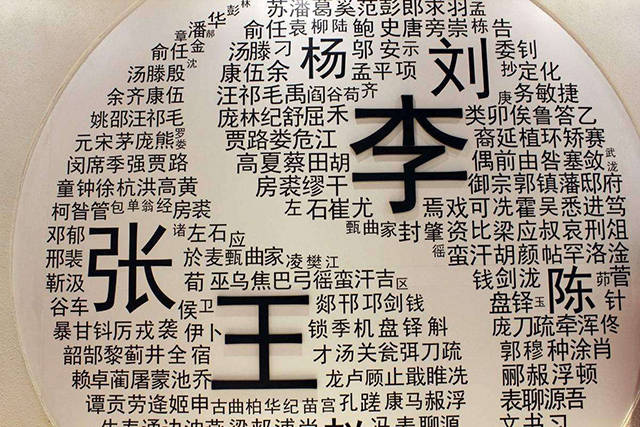 苏潘葛奚范彭郎求羽孟
彭林
潘华
郝
俞任袁柳陆鲍史唐旁崇栋告
章金
俞任
沈
汤滕刁
杨
邬安示
刘
委钊
汤滕殷
康伍余
孟平项
抄定化
余齐康伍
汪祁毛禹阎谷苟齐
庚务敏捷
姚邵汪祁毛
庞林纪舒屈禾
李
类卯俟鲁答乙
元宋茅庞熊罗娄
贾路娄危江
裔延植环矫赛
闵席季强贾路
高夏蔡田胡
偶前由昝塞敛武泷
童钟徐杭洪高黄
房裘缪干
御宗郭镇藩邸府
柯昝管包单翁经房裘
左石崔尤
焉戏可冼霍吴悉进笃
邓郁
张
诸左石应
甄曲家封肇
资比梁应叔哀刑俎
邢裴
於麦甄曲家凌樊江
徭蛮汗胡颜帖罕洛淦
靳汲
荀巫乌焦巴弓徭蛮汗吉区
钱剑泷
陈
茆菅
谷车
侯卫
王
郯邗邛剑钱
盘铎玉
针
暴甘钭厉戎袭伊卜
锁季机盘铎斛
庞刀疏牵浑佟
韶郜黎蓟井全宿
才汤关瓮弭刀疏
郭穆种涂肖
赖卓蔺屠蒙池乔
龙卢顾止戢睢冼
郦郝浮顿
谭贡劳逄姬申古曲柏华纪苗宫孔蹉康马赧浮
表聊源吾